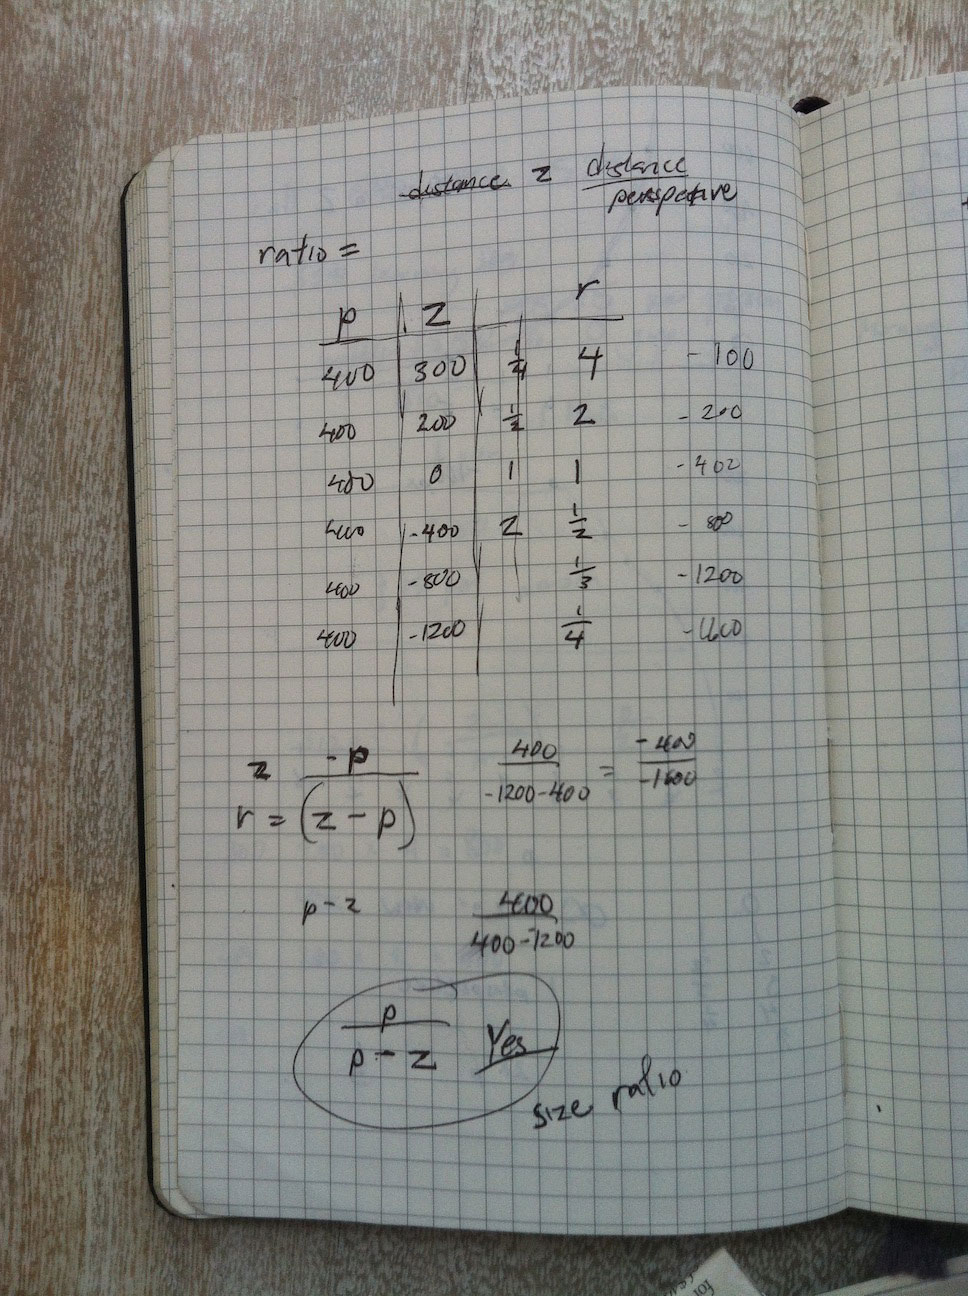 distance z distance
perspective
ratio =
p z r
400 300 1/4 4 -100
400 200 1/2 2 -200
400 0 1 1 -400
400 -400 2 1/2 -800
400 -800 1/3 -1200
400 -1200 1/4 -1600
z -p 400 = -400
r = (z - p) -1200-400 -1600
p-z 400
400--1200
p
p - z Yes
size ratio